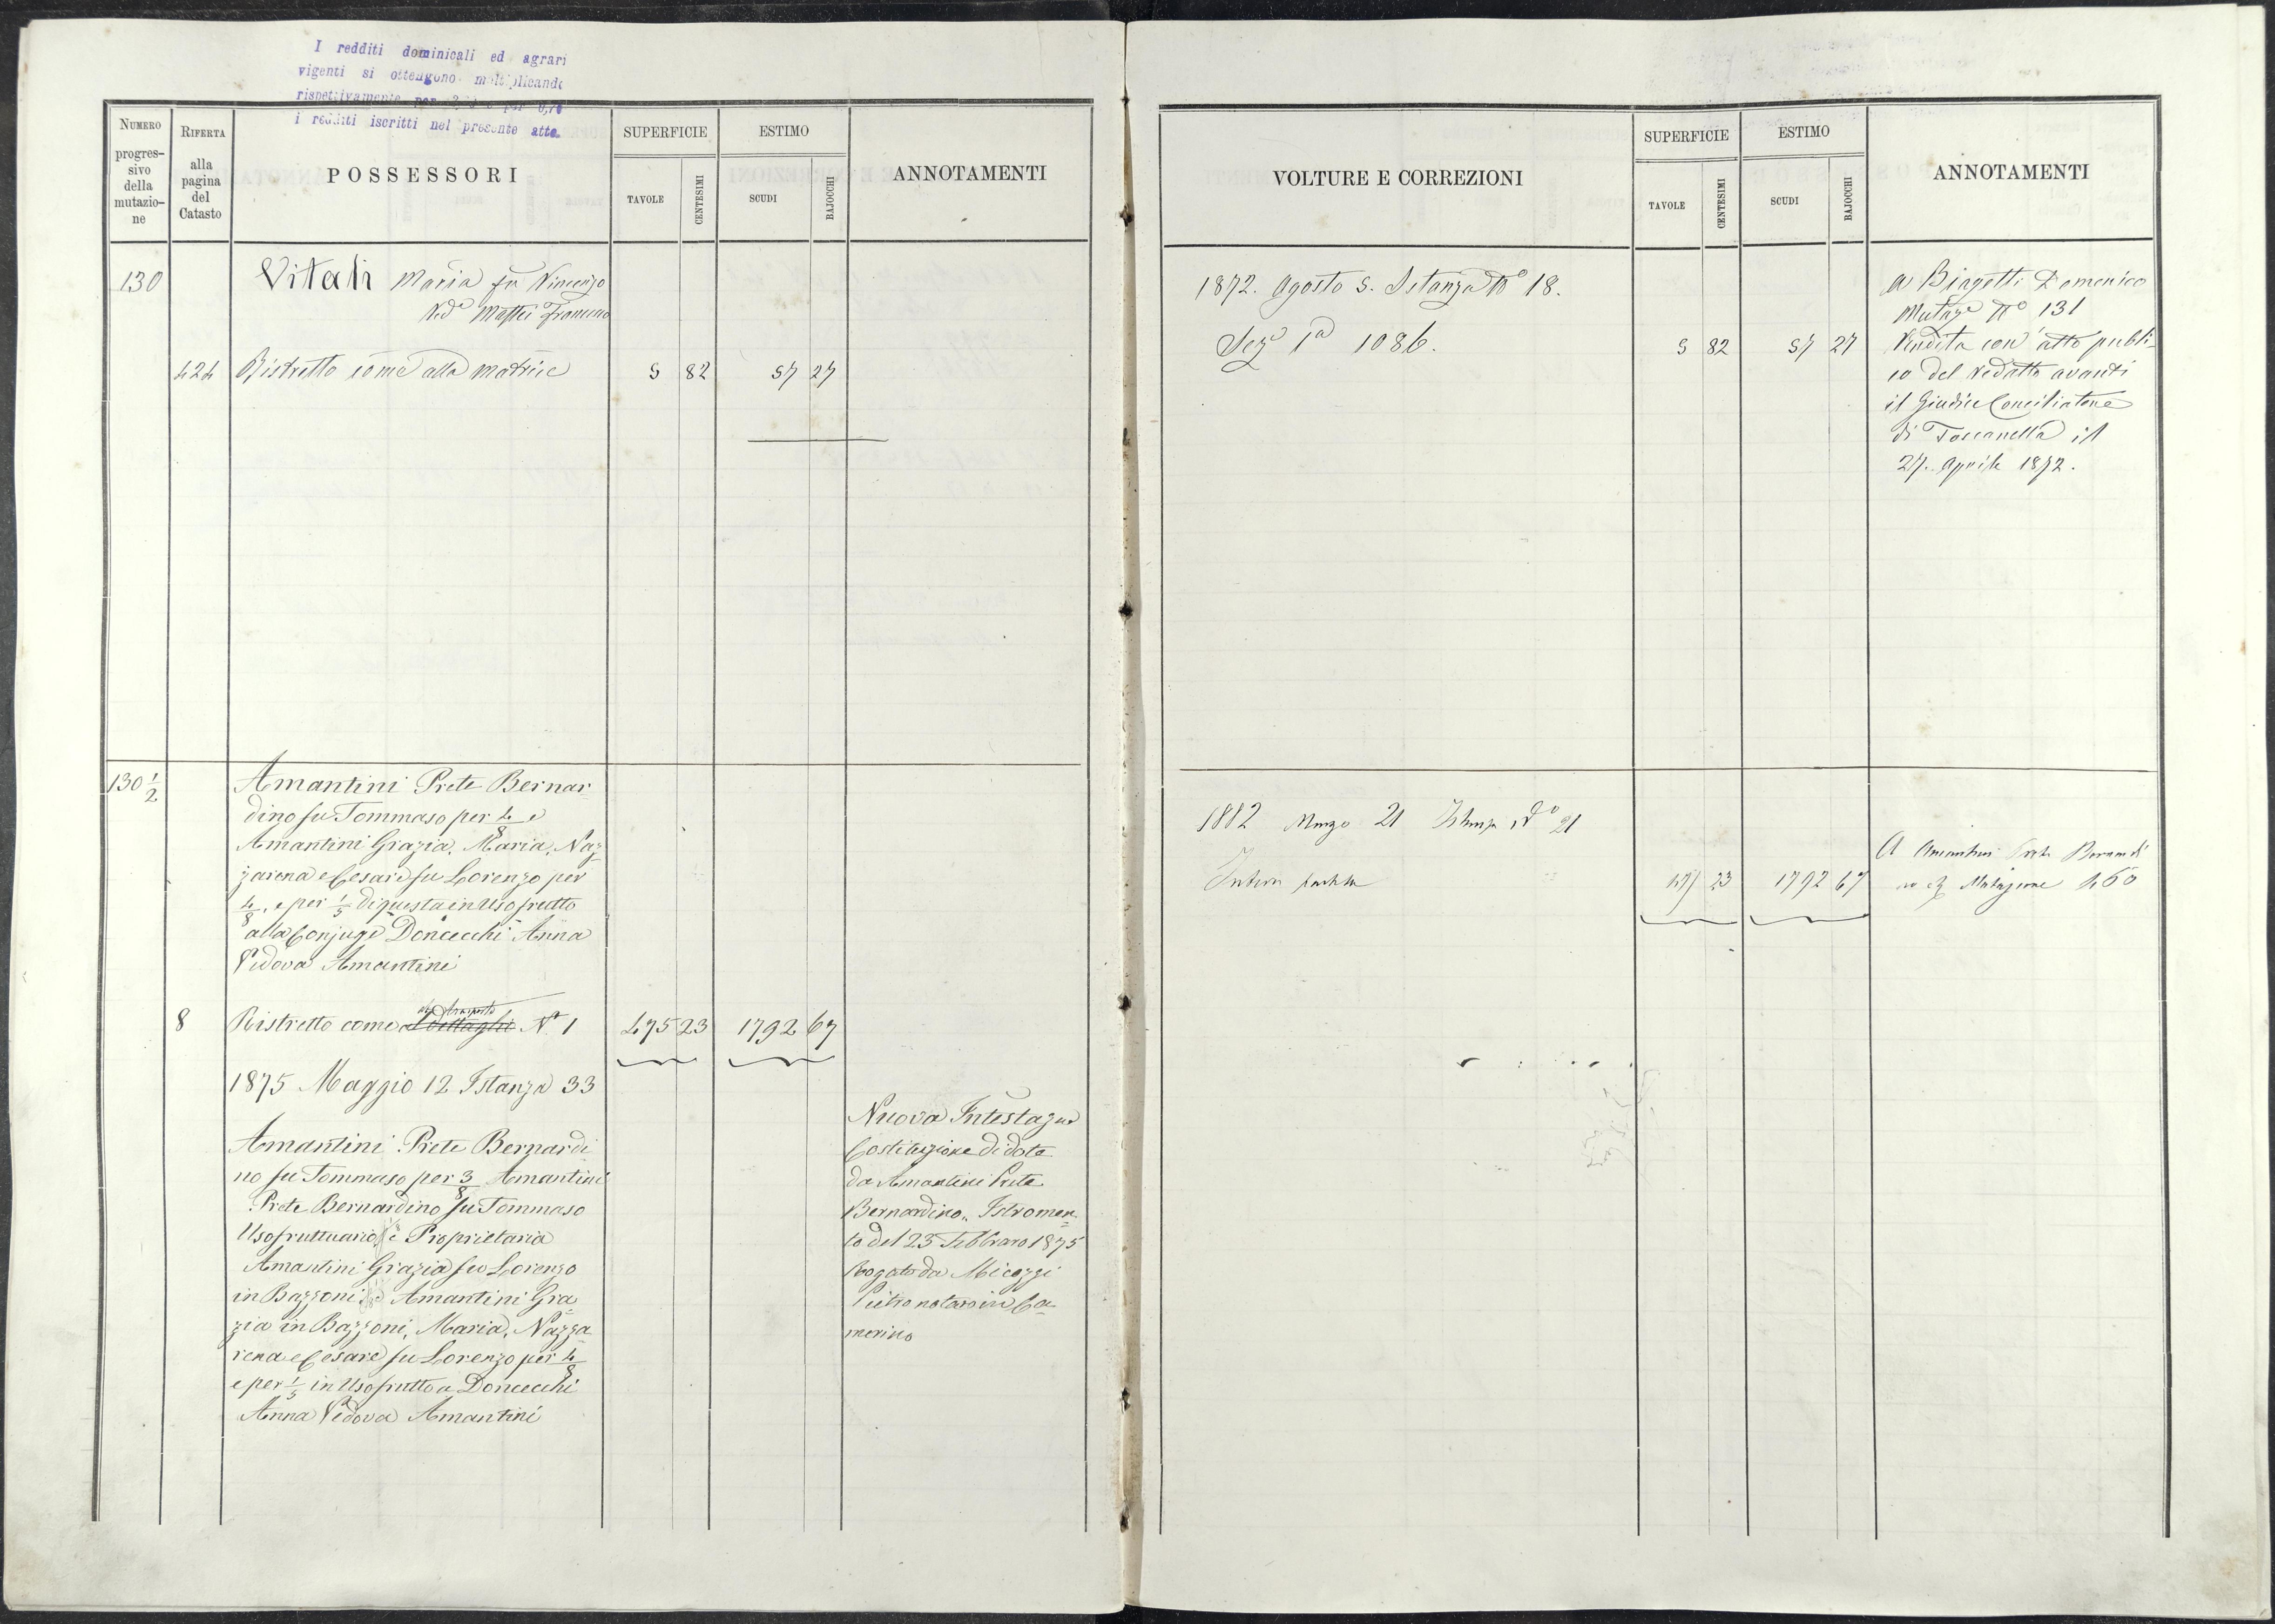 I redditi dominicali ed agrari
vigenti si ottengono moltiplicando
rispettivamente per
i redditi iscritti nel presente atto.
NUMERO
progres-
sivo
della
mutazio-
ne
RIFERTA
alla
pagina
del
Catasto
POSSESSORI
SUPERFICIE
TAVOLE
CENTESIMI
ESTIMO
SCUDI
BAJOCCHI
ANNOTAMENTI
130
Vitali Maria fu Vincenzo
Ved.a Maffei
424 Ristretto come alla matrice 5 82 57 27
130 1/2
Amantini Prete Bernar-
dino fu Tommaso per 4/8 e
Amantini Grazia, Maria, Naz-
zarena e Cesare fu Lorenzo per
4/8, e per 1/5 di questa in Usofrutto
alla Conjuge Doncecchi Anna
Vedova Amantini
8 Ristretto come N.o 1 475 23 1792 67
1875 Maggio 12 Istanza 33
Amantini Prete Bernardi
no fu Tommaso per 3/8 Amantini
Prete Bernardino fu Tommaso
Usofruttuario, e Proprietaria
Amantini Grazia fu Lorenzo
in Bazzoni, Amantini Gra-
zia in Bazzoni, Maria, Nazza-
rena e Cesare fu Lorenzo per 4/8
e per 1/5 in Usofrutto a Doncecchi
Anna Vedova Amantini
Nuova Intestazne
Costituzione di dote
da Amantini Prete
Bernardino, Istromen-
to del 23 Febbraro 1875
Rogato da Micozzi
Pietro notaro in Ca-
merino
VOLTURE E CORREZIONI
SUPERFICIE
TAVOLE
CENTESIMI
ESTIMO
SCUDI
BAJOCCHI
ANNOTAMENTI
1872. Agosto 5. Istanza No 18.
Seze 1a 1086. 5 82 57 27
A Biagetti Domenico
Mutaze No 131
Vendita con atto publi-
co del redatto avanti
il Giudice Conciliatore
di Toscanella il
27. Aprile 1872.
1882 Marzo 21 Istanza No 21
Intera partita 475 23 1792 67
A Amantini Prete Bernardi
no Mutazione 460